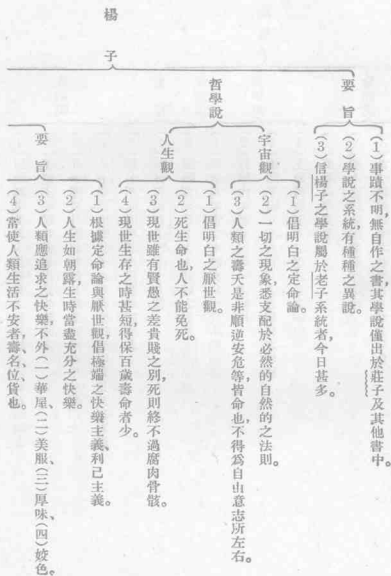 楊子
要旨
(1)事蹟不明,無自作之書,其學說僅出於莊子及其他書中。
(2)學說之系統,有種種之異說。
(3)信楊子之學說屬於老子系統者,今日甚多。
哲學說
宇宙觀
(1)倡明白之定命論。
(2)一切之現象,悉支配於必然的自然的之法則。
(3)人類之壽夭,是非,順逆,安危等,皆命也,不得為自由意志所左右。
人生觀
(1)倡明白之厭世觀。
(2)死生命也,人不能免死。
(3)現世雖有賢愚之差,貴賤之別,死則終不過腐肉骨骸。
(4)現世生存之時甚短,得保百歲壽命者少。
要旨
(1)根據定命論與厭世觀,倡極端之快樂主義,利己主義。
(2)人生如朝露,生時當盡充分之快樂。
(3)人類應追求之快樂,不外(一)華屋,(二)美服,(三)厚味,(四)姣色。
(4)當使人類生活不安者,壽,名,位,貨也。